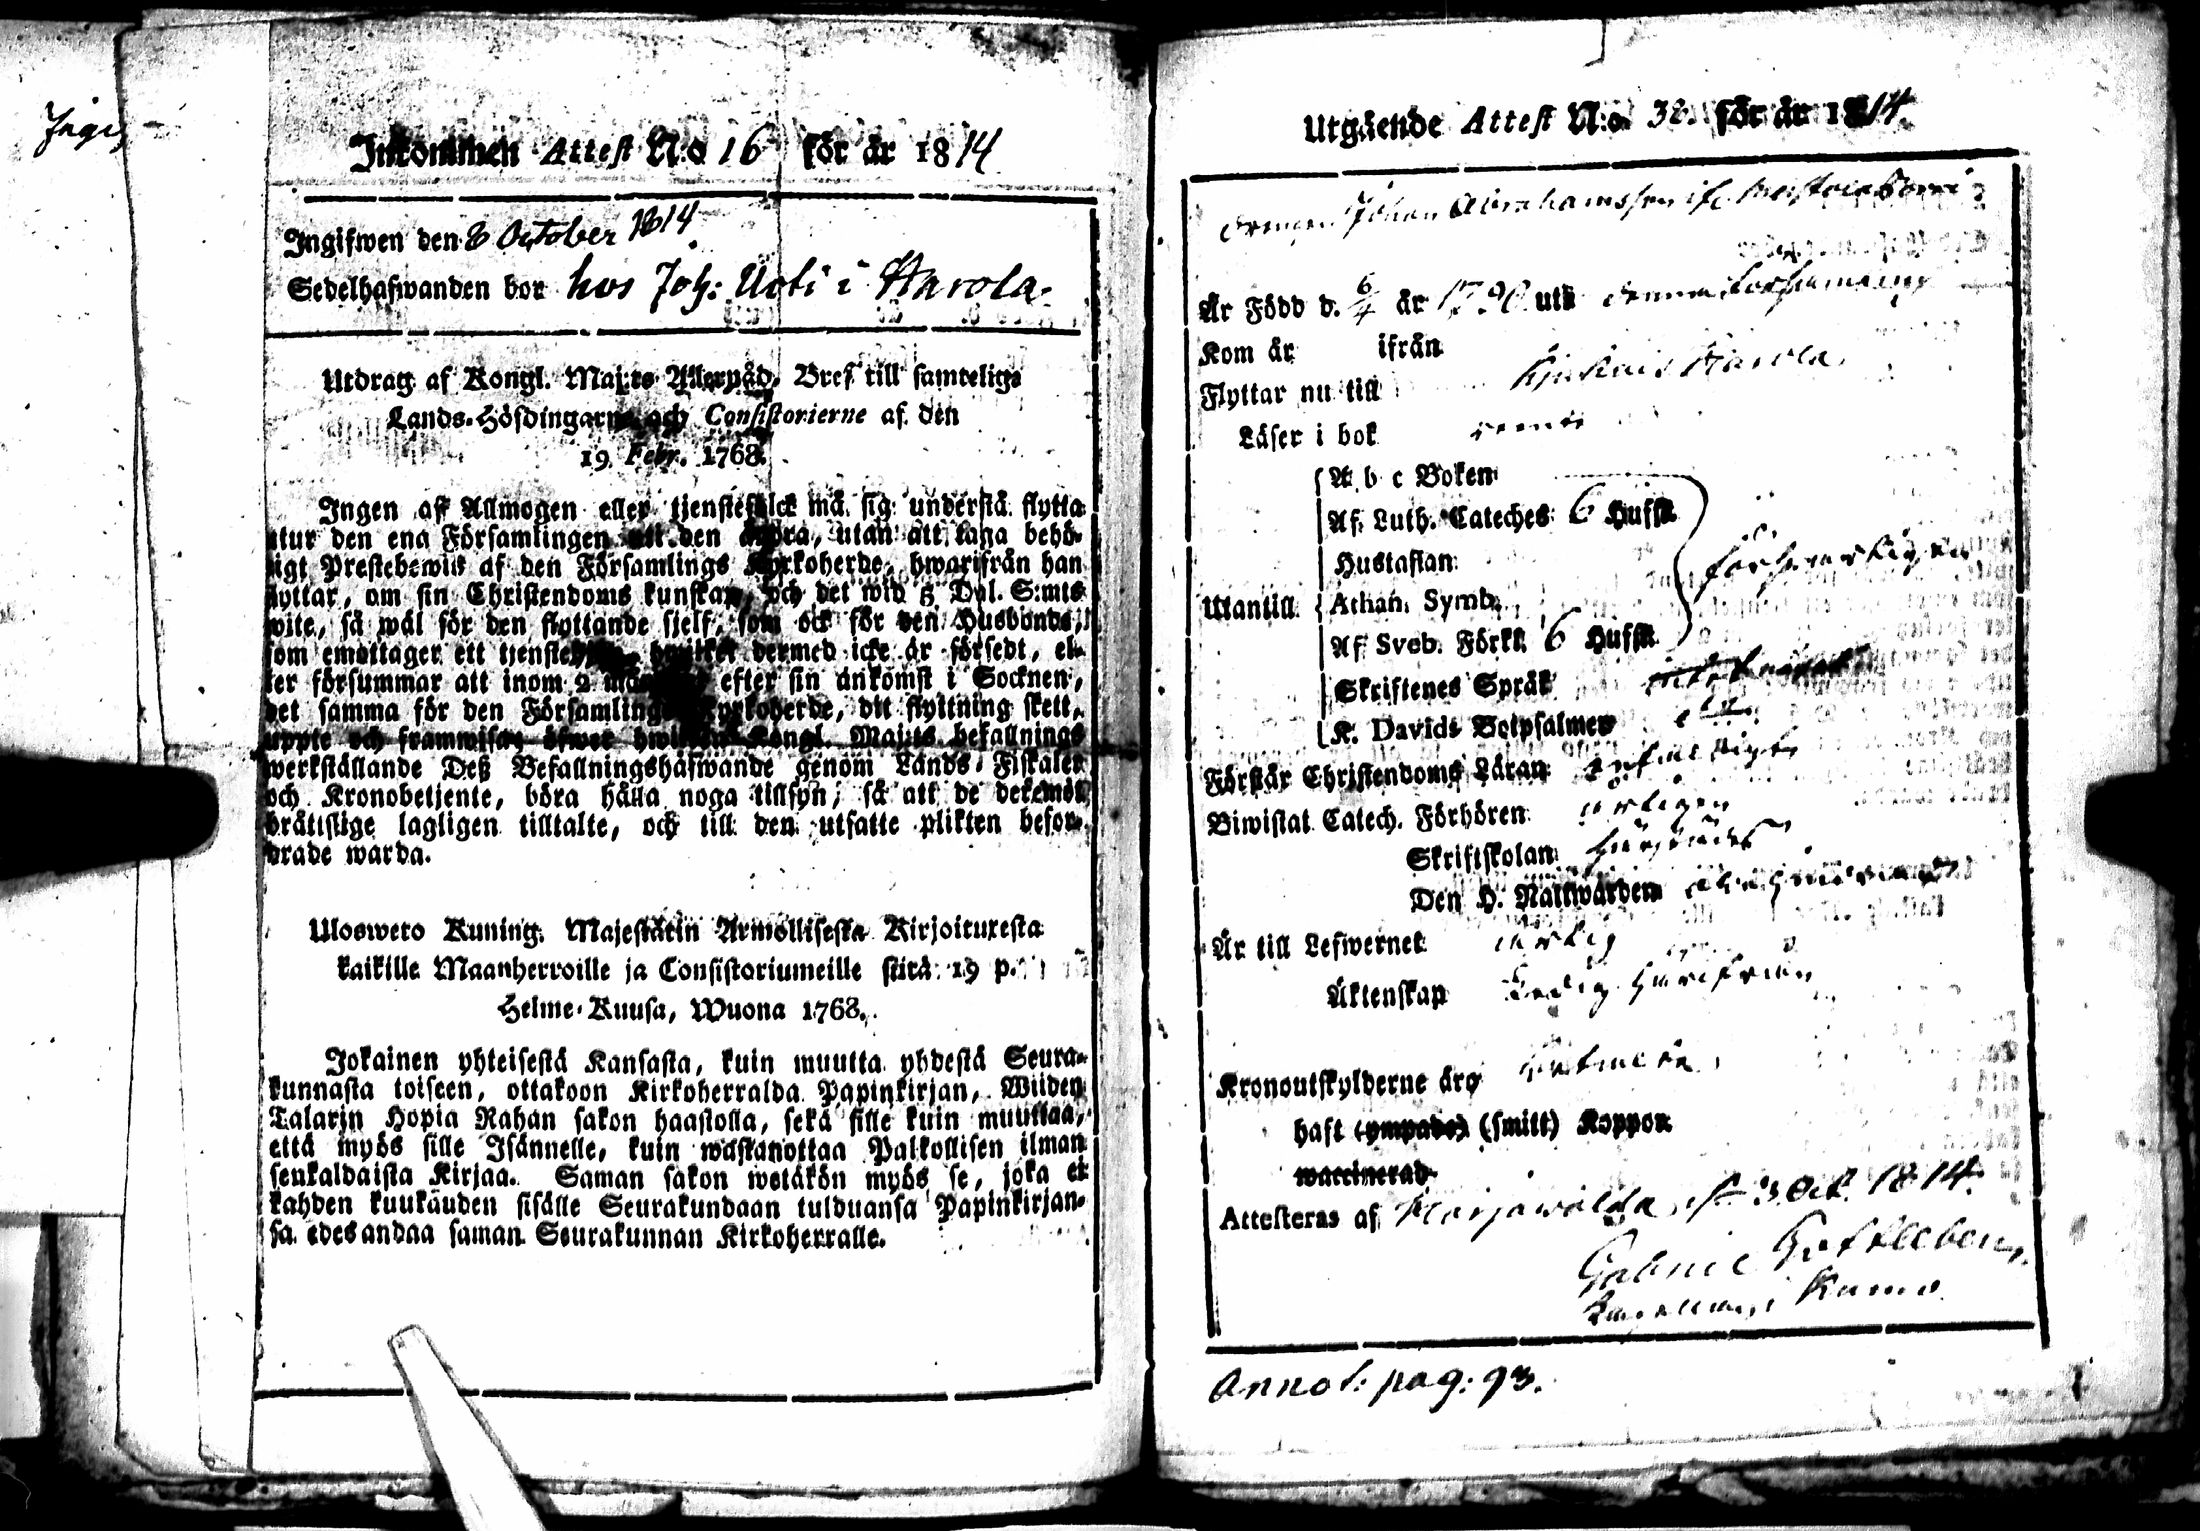 Inkommen Attest N:o 16 för år 1814
Ingifwen den 8 October 1814
Sedelhafwanden bor hos Joh: Uoti i Harola
Utdrag af Kongl. Maj:ts Allernåd. Bref till samtelige
Lands-Höfdingarne och Consistorierne af den
19 Febr. 1768.
Ingen af Allmogen eller tjenstefolck må sig understå flytta
utur den ena Församlingen till den andra, utan att taga behö-
rigt Prestebewis af den Församlings Kyrkoherde, hwarifrån han
flyttar, om sin Christendoms kunskap, och det wid 5 Dal. S:mts
wite, så wäl för den flyttande sielf, som ock för den Husbonde,
som emottager ett tjenstehjon, hwilket dermed icke är försedt, el-
ler försummar att inom 2 månader efter sin ankomst i Socknen,
det samma för den Församlings Kyrkoherde, dit flyttning skett,
uppte och framwisa; öfwer hwilken Kongl. Maj:ts befallnings
werkställande Deß Befallningshafwande genom Lands-Fiskaler
och Kronobetjente, böra hålla noga tillsyn, så att de deremot
bråttslige lagligen tilltalte, och till den utsatte plikten befor-
drade warda.
Ulosweto Kuning. Majestätin Armollisesta Kirjoituxesta
kaikille Maanherroille ja Consistoriumeille siitä 19 p.
Helme-Kuusa, Wuona 1768.
Jokainen yhteisestä Kansasta, kuin muutta yhdestä Seura-
kunnasta toiseen, ottakoon Kirkoherralda Papinkirjan, Wiiden
Talarin Hopia Rahan sakon haastolla, sekä sille kuin muuttaa,
että myös sille Isännelle, kuin wastanottaa Palkollisen ilman
senkaldaista Kirjaa. Saman sakon wetäkön myös se, joka ei
kahden kuukauden sisälle Seurakundaan tulduansa Papinkirjan-
sa edesandaa saman Seurakunnan Kirkoherralle.
Utgående Attest N:o 38. för år 1814.
Drengen Johan Abrahamsson ifr.
Är Född d. 6/4 år 1790 uti denna Församling
Kom år ifrån
Flyttar nu till Kjukais Harola
Läser i bok
A b c Boken
Af Luth. Cateches 6 Hufst.
Hustaflan
Utantill Athan. Symb.
Af Sveb. Förkl. 6 Hufst.
Skriftenes Språk
K. Davids Botpsalmer
Förstår Christendoms Läran
Biwistat Catech. Förhören årligen
Skriftskolan
Den H. Nattwarden
Är till Lefwernet ärlig
Äktenskap Ledig
Kronoutskylderne äro
haft (ympade) (smitt) Koppor
waccinerad
Attesteras af Harjawalda d. 3 Oct. 1814.
Gabriel Gottleben
Capellan i Kumo
Annot: pag: 93.